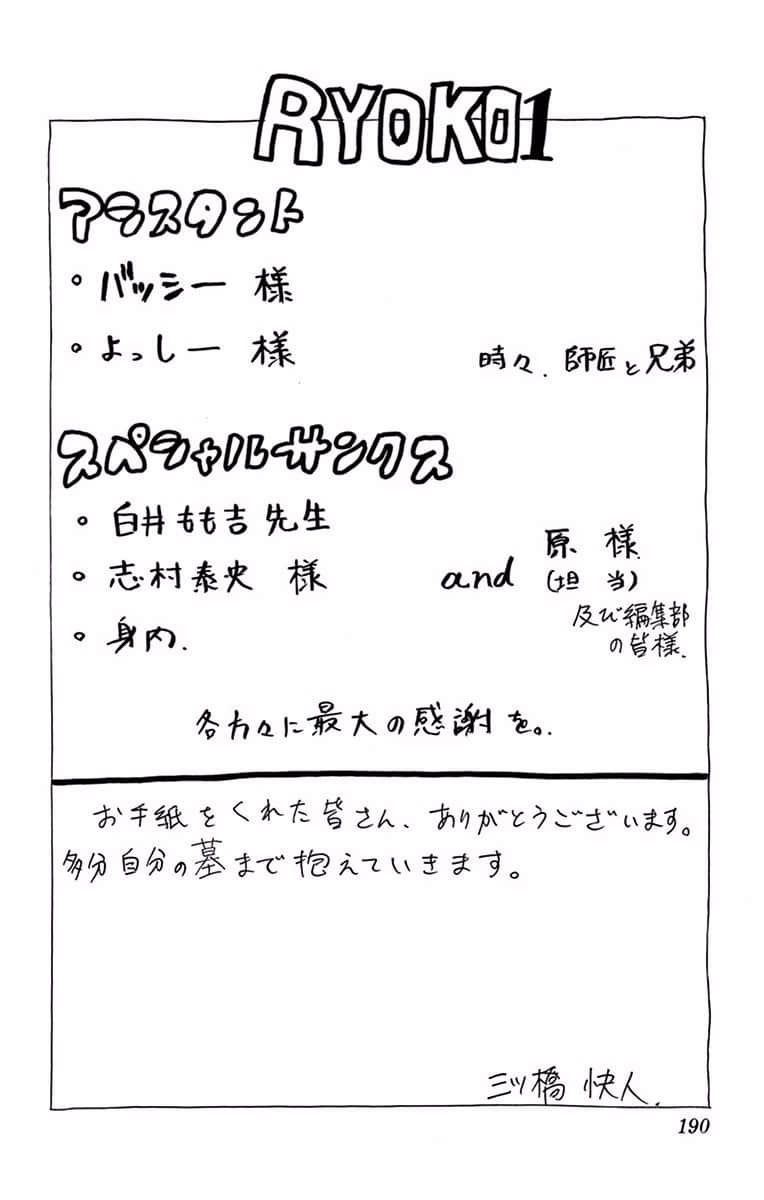 RYOKO 1
アシスタント
・バッシー 様
・よっしー 様
時々、師匠と兄弟
スペシャルサンクス
・白井もも吉 先生
・志村泰央 様
・身内.
and
原 様
(担当)
及び編集部
の皆様.
各方々に最大の感謝を。
お手紙をくれた皆さん、ありがとうございます。
多分自分の墓まで抱えていきます。
三ツ橋 快人.
190